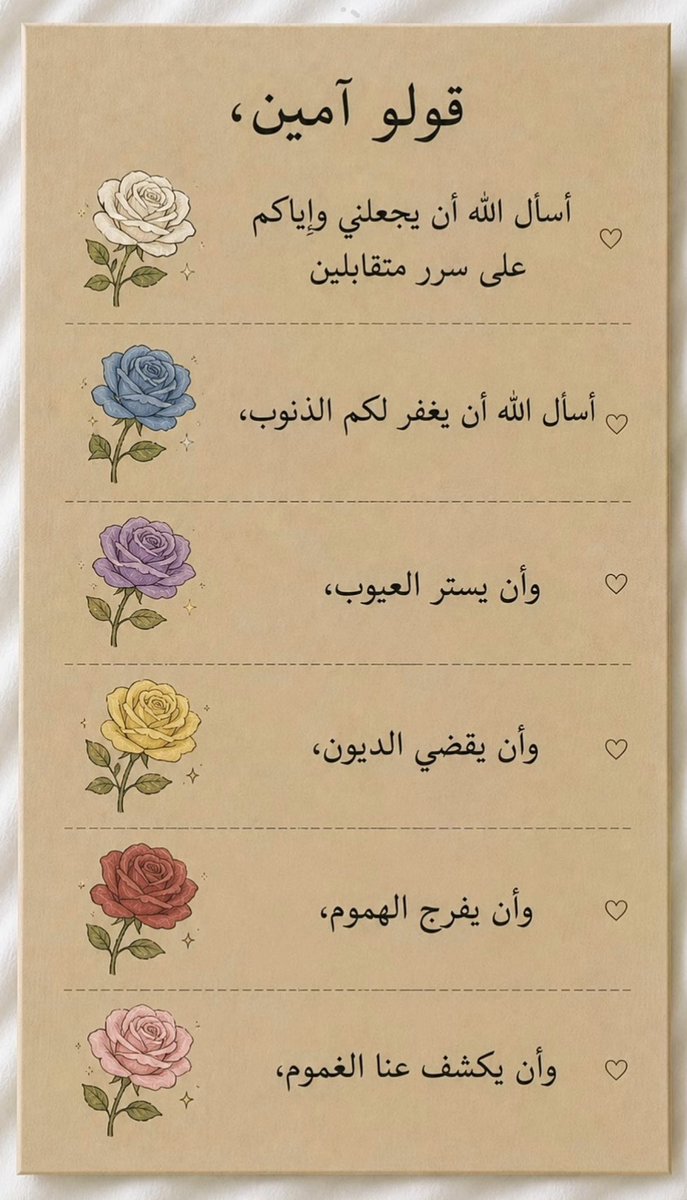 قولو آمين،
أسأل الله أن يجعلني وإياكم
على سرر متقابلين
أسأل الله أن يغفر لكم الذنوب،
وأن يستر العيوب،
وأن يقضي الديون،
وأن يفرج الهموم،
وأن يكشف عنا الغموم،